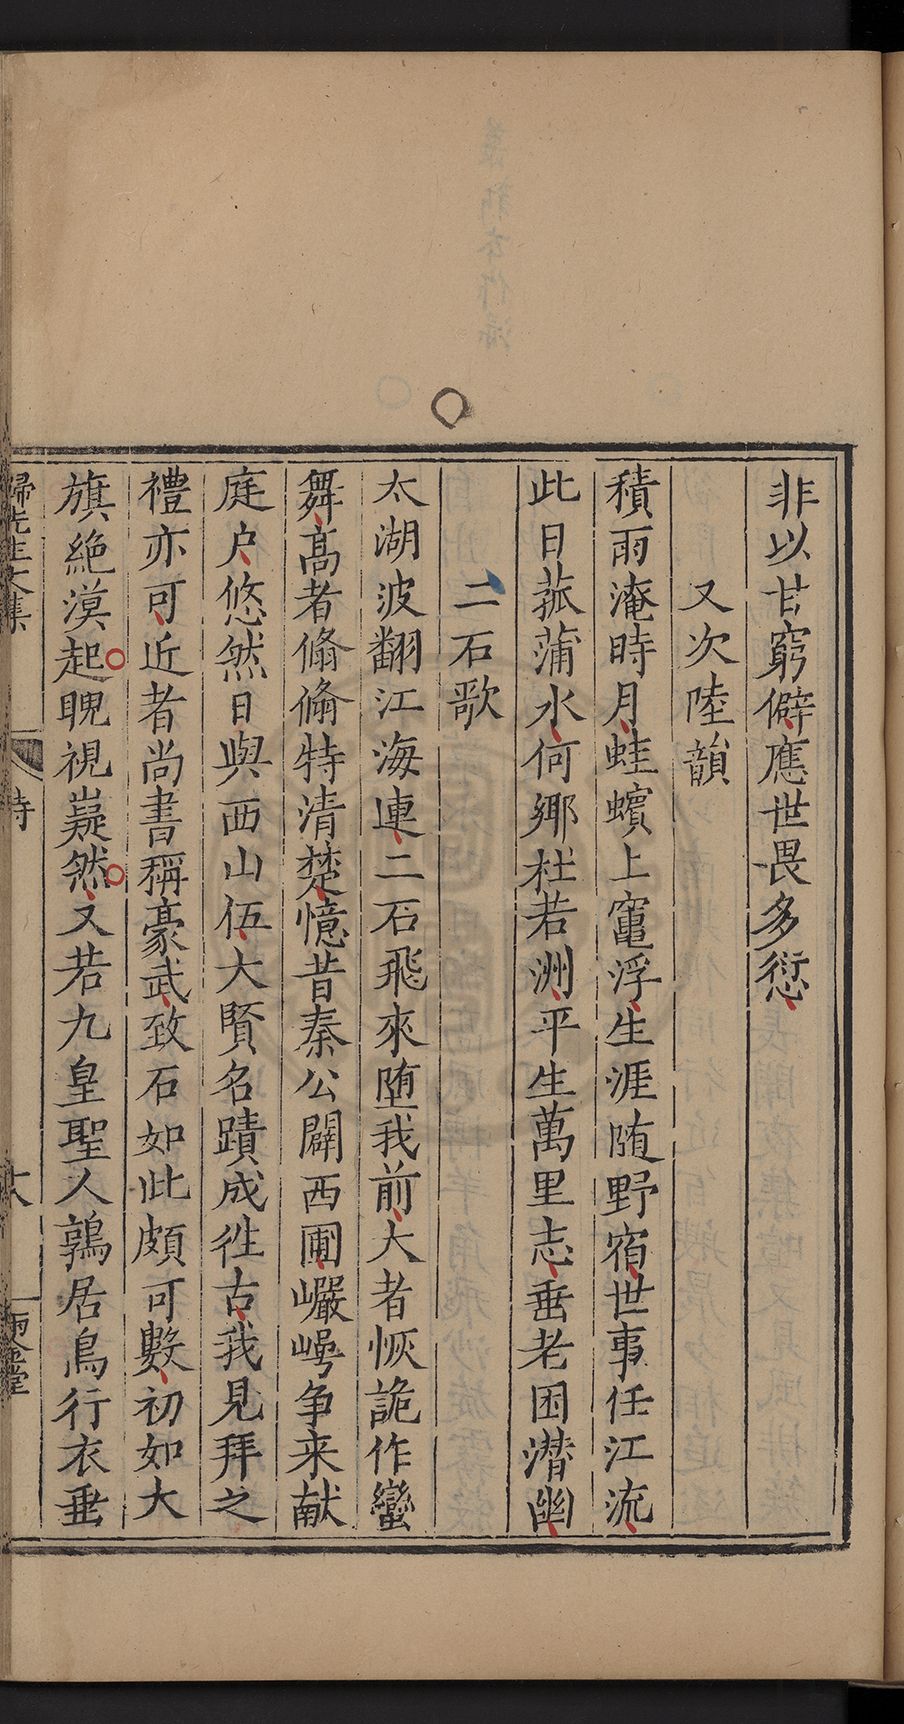 非以甘窮僻應世畏多愆
又次陸韻
積雨淹時月蛙蠙上竈浮生涯隨野宿世事任江流
此日菰蒲水何郷杜若洲平生萬里志垂老困潜幽
二石歌
太湖波翻江海連二石飛來墮我前大者恢詭作蠻
舞高者翛翛特清楚憶昔秦公闢西圃巗嶀争来献
庭户悠然日與西山伍大賢名蹟成徃古我見拜之
禮亦可近者尚書稱豪武致石如此頗可數初如大
旗絶漠起睨視嶷然又若九皇聖人鶉居鳥行衣垂
歸先生文集
詩